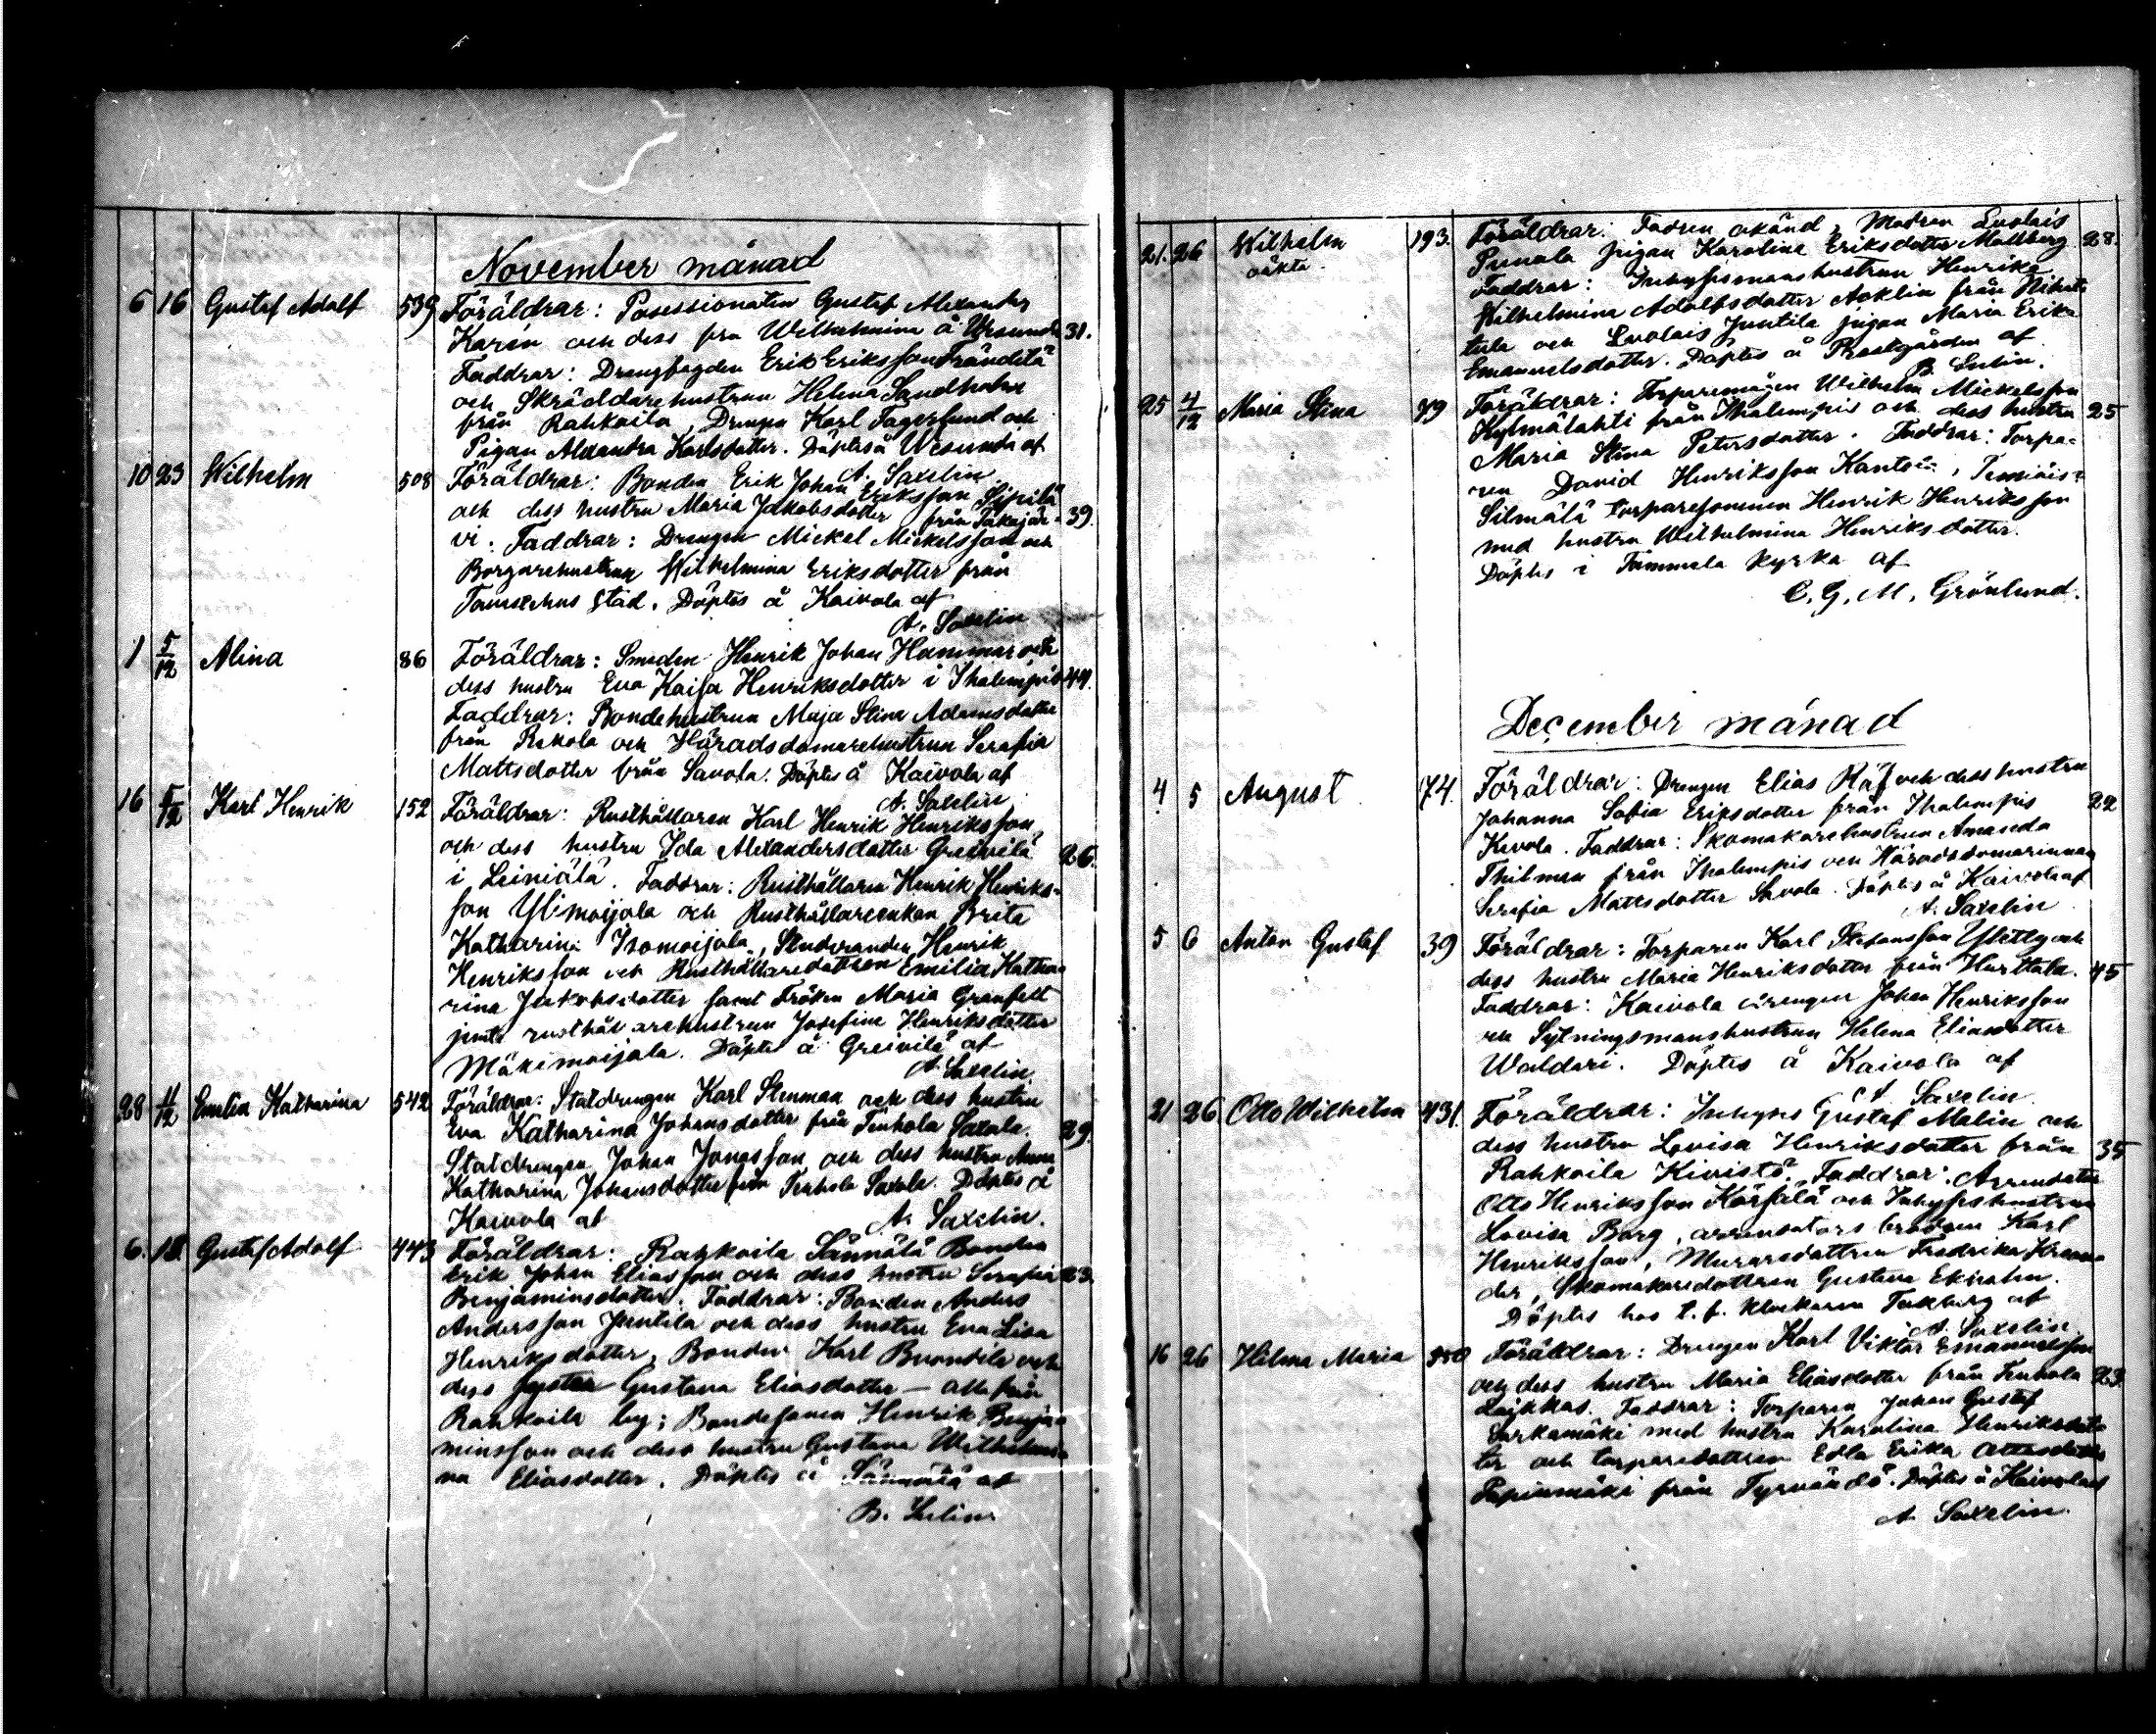 November månad
6 16 Gustaf Adolf 539 Föräldrar: Possessionaten Gustaf Alexander
Karén och dess fru Wilhelmina å Wesunda 31.
Faddrar: Drengfogden Erik Eriksson Frändilä
och Skräddarehustrun Helena Sandholm
från Rahkoila, Drengen Karl Fagerlund och
Pigan Alexandra Karlsdotter. Döptes å Wesunda af
A. Saxelin.
10 23 Wilhelm 508 Föräldrar: Bonden Erik Johan Eriksson Sipilä
och dess hustru Maria Jakobsdotter från Takajär- 39.
vi. Faddrar: Drengen Mickel Mickelsson och
Borgarehustrun Wilhelmina Eriksdotter från
Tavastehus stad. Döptes å Kaivola af
A. Saxelin
1 5/12 Alina 86 Föräldrar: Smeden Henrik Johan Hammar och
dess hustru Eva Kaisa Henriksdotter i Ihalempis 44.
Faddrar: Bondehustrun Maja Stina Adamsdotter
från Rekola och Häradsdomarehustrun Serafia
Mattsdotter från Savola. Döptes å Kaivola af
A. Saxelin.
16 5/12 Karl Henrik 152 Föräldrar: Rusthållaren Karl Henrik Henriksson
och dess hustru Ida Alexandersdotter Greivilä 26.
i Leiniälä. Faddrar: Rusthållaren Henrik Henriks-
son Ylimoijala och Rusthållareenkan Brita
Katharina Isomoijala, Studeranden Henrik
Henriksson och Rusthållaredottren Emilia Katha-
rina Jakobsdotter samt Fröken Maria Granfelt
jemte rusthållarehustrun Josefina Henriksdotter
Mäkimoijala. Döptes å Greivilä af
A. Saxelin.
28 11/12 Emilia Katharina 542 Föräldrar: Staldrengen Karl Stenman och dess hustru
Eva Katharina Johansdotter från Tenhola Saxala. 29.
Staldrengen Johan Jonasson och dess hustru Anna
Katharina Johansdotter från Tenhola Saxala. Döptes å
Kaivola af A. Saxelin.
6. 12. Gustaf Adolf 443 Föräldrar: Rahkoila Sännälä Bonden
Erik Johan Eliasson och dess hustru Serafia 23.
Benjaminsdotter. Faddrar: Bonden Anders
Andersson Juntila och dess hustru Eva Lisa
Henriksdotter, Bonden Karl och
dess syster Gustava Eliasdotter — alla från
Rahkoila by; Bondesonen Henrik Benja-
minsson och dess hustru Gustava Wilhelmi-
na Eliasdotter. Döptes å Sännälä af
B. Sulin.
21. 26 Wilhelm 193. Föräldrar: Fadren okänd, Modren Luolais
oäkta Punola pigan Karolina Eriksdotter Mallberg 28.
Faddrar: Inhysismanshustrun Henrika
Wilhelmina Adolfsdotter Acklin från
och Luolais Juntila pigan Maria Erika
Emanuelsdotter. Döptes å Prestgården af
B. Sulin.
25 4/12 Maria Stina 79 Föräldrar: Torparemågen Wilhelm Mickelsson
Kylmälahti från Ihalempis och dess hustru 25
Maria Stina Petersdotter. Faddrar: Torpa-
ren David Henriksson
Silmälä torparesonen Henrik Henriksson
med hustru Wilhelmina Henriksdotter.
Döptes i Tammela kyrka af
C. G. M. Grönlund.
December månad
4 5 August 174. Föräldrar: Drengen Elias Räf och dess hustru
Johanna Sofia Eriksdotter från Ihalempis 22
Kevola. Faddrar: Skomakarehustrun Amanda
Thilman från Ihalempis och Häradsdomarinnan
Serafia Mattsdotter Savola. Döptes å Kaivola af
A. Saxelin
5 6 Anton Gustaf 39 Föräldrar: Torparen Karl Stefansson och
dess hustru Maria Henriksdotter från Hurttala. 45
Faddrar: Kaivola drengen Johan Henriksson
och Sytningsmanshustrun Helena Eliasdotter
Waldari. Döptes å Kaivola af
A. Saxelin.
21 26 Otto Wilhelm 431. Föräldrar: Inhyses Gustaf Malin och
dess hustru Lovisa Henriksdotter från 35
Rahkoila Kivistö. Faddrar: Arrendator
Otto Henriksson Kärjälä och Inhyseshustrun
Lovisa Borg, arrendators brodren Karl
Henriksson, Muraredottren Fredrika
Skomakaredottren Gustava Ekholm.
Döptes hos t. f. klockaren Takberg af
A. Saxelin.
16 26 Hilma Maria 550 Föräldrar: Drengen Karl Viktor Emanuelsson
och dess hustru Maria Eliasdotter från Tenhola 23.
Laikkas. Faddrar: Torparen Johan Gustaf
Sarkamäki med hustru Karolina Henriksdot-
ter och torparedottren Edla Erika
Papinmäki från Tyrvändö. Döptes å Kaivola af
A. Saxelin.